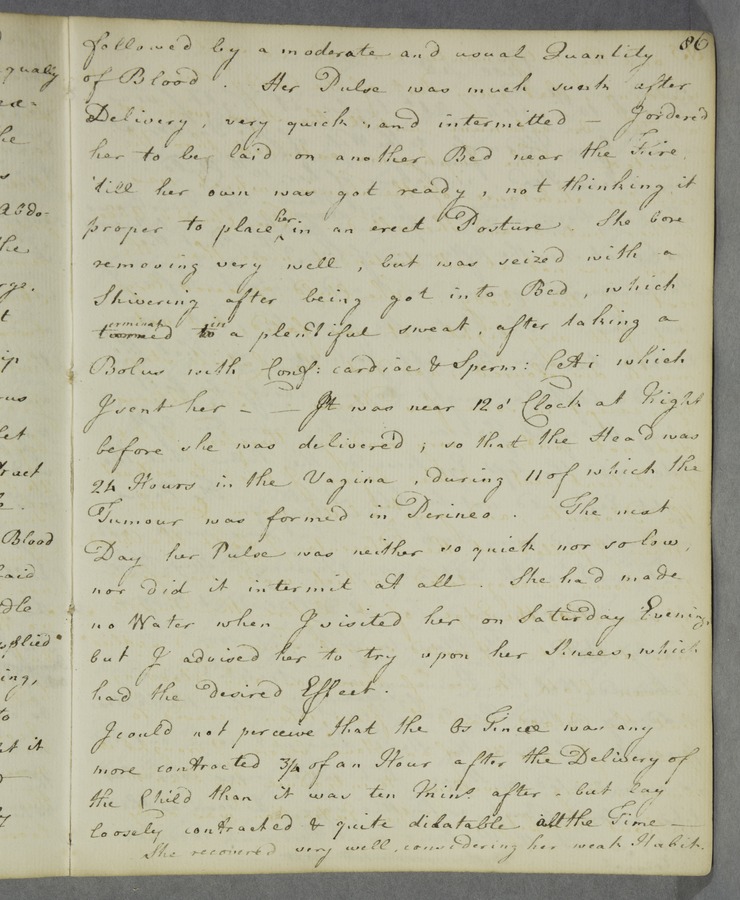 86
followed by a moderate and usual Quantity
of Blood . Her Pulse was much sunk after
Delivery, very quick, and intermitted — I ordered
her to be laid on another Bed near the Fire
'till her own was got ready, not thinking it
proper to place her in an erect Posture. She bore
removing very well, but was seized with a
Shivering after being got into Bed, which
terminated in a plentiful sweat, after taking a
Bolus with Conf: cardiac & Sperm: Ceti which
I sent her — — It was near 12 o' Clock at Night
before she was delivered; so that the Head was
24 Hours in the Vagina, during 11 of which the
Tumour was formed in Perineo . The next
Day her Pulse was neither so quick nor so low,
nor did it intermit at all . She had made
no Water when I visited her on Saturday Evening,
but I advised her to try upon her Knees, which
had the desired Effect.
I could not perceive that the Os Tincæ was any
more contracted 3/4 of an Hour after the Delivery of
the Child than it was ten Mins. after - but lay
loosely contracted & quite dilatable all the Time —
She recovered very well, considering her weak Habit.
qually
he
s
Abdo-
the
rge.
t
ip
rus
let
tract
Blood
laid
dle
plied
ing,
to
ut it